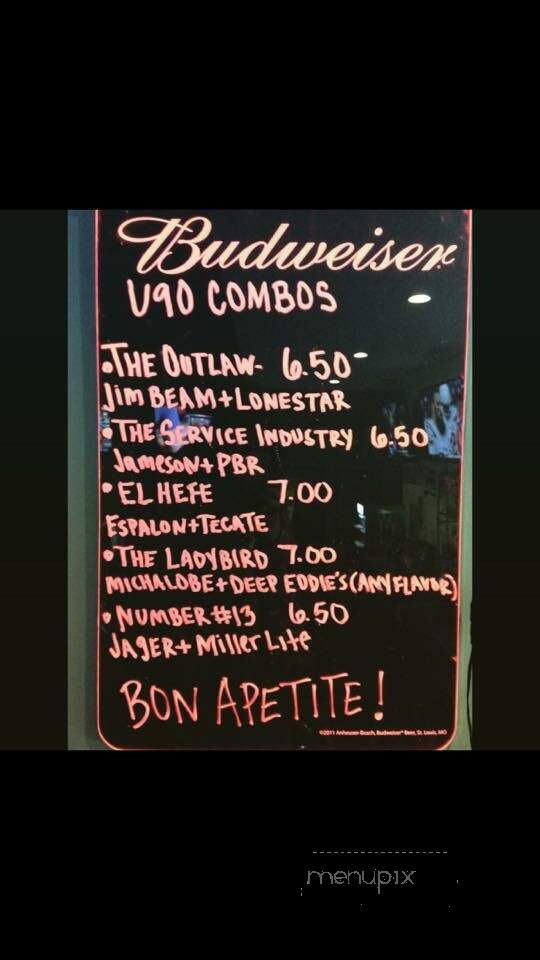 Budweiser
U90 COMBOS
•THE OUTLAW- 6.50
JIM BEAM+LONESTAR
•THE SERVICE INDUSTRY 6.50
JAMESON+PBR
•EL HEFE 7.00
ESPALON+TECATE
•THE LADYBIRD 7.00
MICHALOBE+DEEP EDDIE'S (ANY FLAVOR)
•NUMBER#13 6.50
JAGER+MILLER LITE
BON APETITE!
©2011 Anheuser-Busch, Budweiser® Beer, St. Louis, MO
menupix